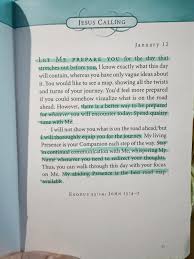 JESUS CALLING
January 12
LET ME PREPARE YOU for the day that
stretches out before you. I know exactly what this day
will contain, whereas you have only vague ideas about
it. You would like to see a map, showing all the twists
and turns of your journey. You'd feel more prepared
if you could somehow visualize what is on the road
ahead. However, there is a better way to be prepared
for whatever you will encounter today: Spend quality
time with Me.
I will not show you what is on the road ahead, but
I will thoroughly equip you for the journey. My living
Presence is your Companion each step of the way. Stay
in continual communication with Me, whispering My
Name whenever you need to redirect your thoughts.
Thus, you can walk through this day with your focus
on Me. My abiding Presence is the best road map
available.
EXODUS 33:14; JOHN 15:4–7